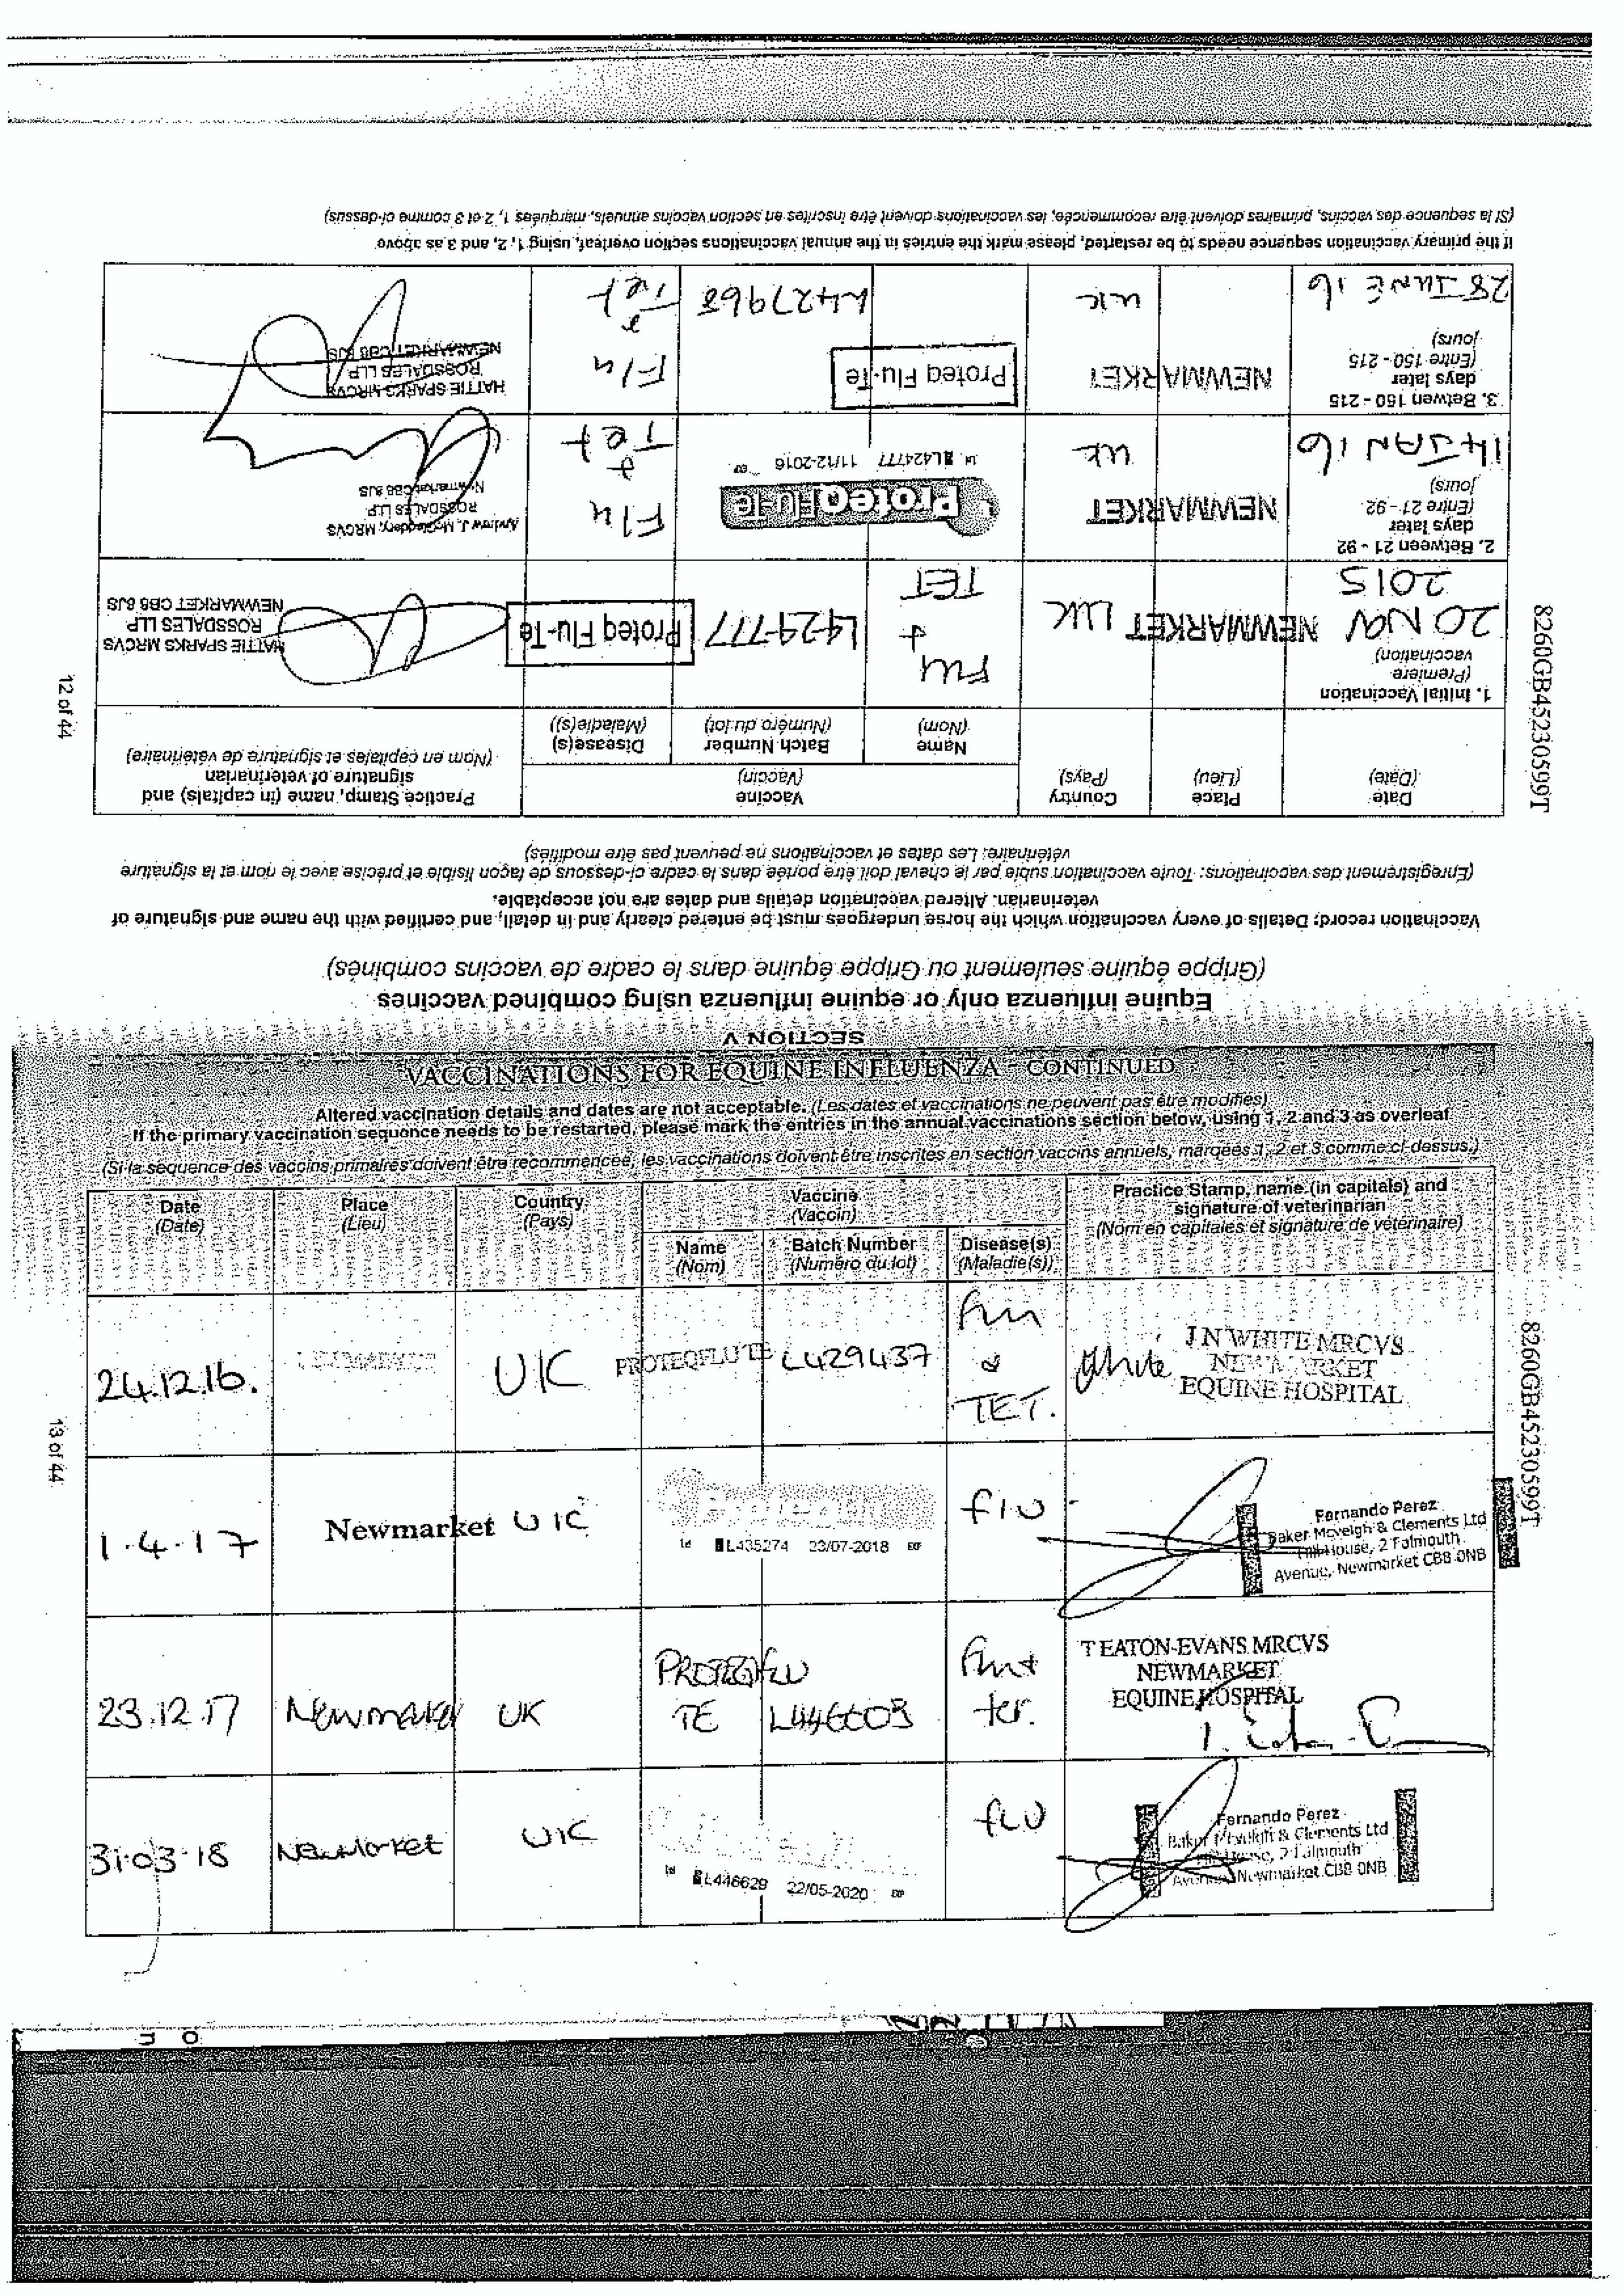 SECTION V
Equine influenza only or equine influenza using combined vaccines
(Grippe équine seulement ou Grippe équine dans le cadre de vaccins combinés)
Vaccination record: Details of every vaccination which the horse undergoes must be entered clearly and in detail, and certified with the name and signature of
veterinarian. Altered vaccination details and dates are not acceptable.
(Enregistrement des vaccinations: Toute vaccination subie par le cheval doit être portée dans le cadre ci-dessous de façon lisible et précise avec le nom et la signature
vétérinaire: Les dates et vaccinations ne peuvent pas être modifiés)
Date
(Date)
Place
(Lieu)
Country
(Pays)
Vaccine
(Vaccin)
Name
(Nom)
Batch Number
(Numéro du lot)
Disease(s)
(Maladie(s))
Practice Stamp, name (in capitals) and
signature of veterinarian
(Nom en capitales et signature de vétérinaire)
1. Initial Vaccination
(Premiere
vaccination)
20 NOV
2015
NEWMARKET UK
FLU
+
TET
L424777
Proteq Flu-Te
HATTIE SPARKS MRCVS
ROSSDALES LLP
NEWMARKET CB8 8JS
2. Between 21 - 92
days later
(Entre 21 - 92
jours)
14 JAN 16
NEWMARKET
UK
ProteqFlu-Te
L424777 11/12-2016
Flu
&
Tet
Andrew J. McGladdery, MRCVS
ROSSDALES LLP
Newmarket CB8 8JS
3. Betwen 150 - 215
days later
(Entre 150 - 215
jours)
28 JUNE 16
NEWMARKET
UK
Proteq Flu-Te
L427968
Flu
&
Tet
HATTIE SPARKS MRCVS
ROSSDALES LLP
NEWMARKET CB8 8JS
If the primary vaccination sequence needs to be restarted, please mark the entries in the annual vaccinations section overleaf, using 1, 2, and 3 as above
(Si la sequence des vaccins, primaires doivent être recommencée, les vaccinations doivent être inscrites en section vaccins annuels, marquées 1, 2 et 3 comme ci-dessus)
8260GB45230599T
12 of 44
VACCINATIONS FOR EQUINE INFLUENZA - CONTINUED
Altered vaccination details and dates are not acceptable. (Les dates et vaccinations ne peuvent pas être modifiés)
If the primary vaccination sequence needs to be restarted, please mark the entries in the annual vaccinations section below, using 1, 2 and 3 as overleaf
(Si la sequence des vaccins primaires doivent être recommencée, les vaccinations doivent être inscrites en section vaccins annuels, marquées 1, 2 et 3 comme ci-dessus.)
Date
(Date)
Place
(Lieu)
Country
(Pays)
Vaccine
(Vaccin)
Name
(Nom)
Batch Number
(Numéro du lot)
Disease(s)
(Maladie(s))
Practice Stamp, name (in capitals) and
signature of veterinarian
(Nom en capitales et signature de véterinaire)
24.12.16.
NEWMARKET
UK
PROTEQFLU TE
L429437
Flu
&
TET.
White
J N WHITE MRCVS
NEWMARKET
EQUINE HOSPITAL
1.4.17
Newmarket
UK
L435274 23/07-2018
flu
Fernando Perez
Baker Mcveigh & Clements Ltd
Hill House, 2 Falmouth
Avenue, Newmarket CB8 0NB
23.12.17
Newmarket
UK
PROTEQ FLU
TE
L446603
Flu +
tet.
T EATON-EVANS MRCVS
NEWMARKET
EQUINE HOSPITAL
31.03.18
Newmarket
UK
L446629 22/05-2020
FLU
Fernando Perez
Baker Mcveigh & Clements Ltd
Hill House, 2 Falmouth
Avenue, Newmarket CB8 0NB
8260GB45230599T
13 of 44